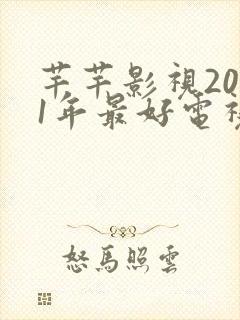 芊芊影視20
1年最好電視
怒馬照雲